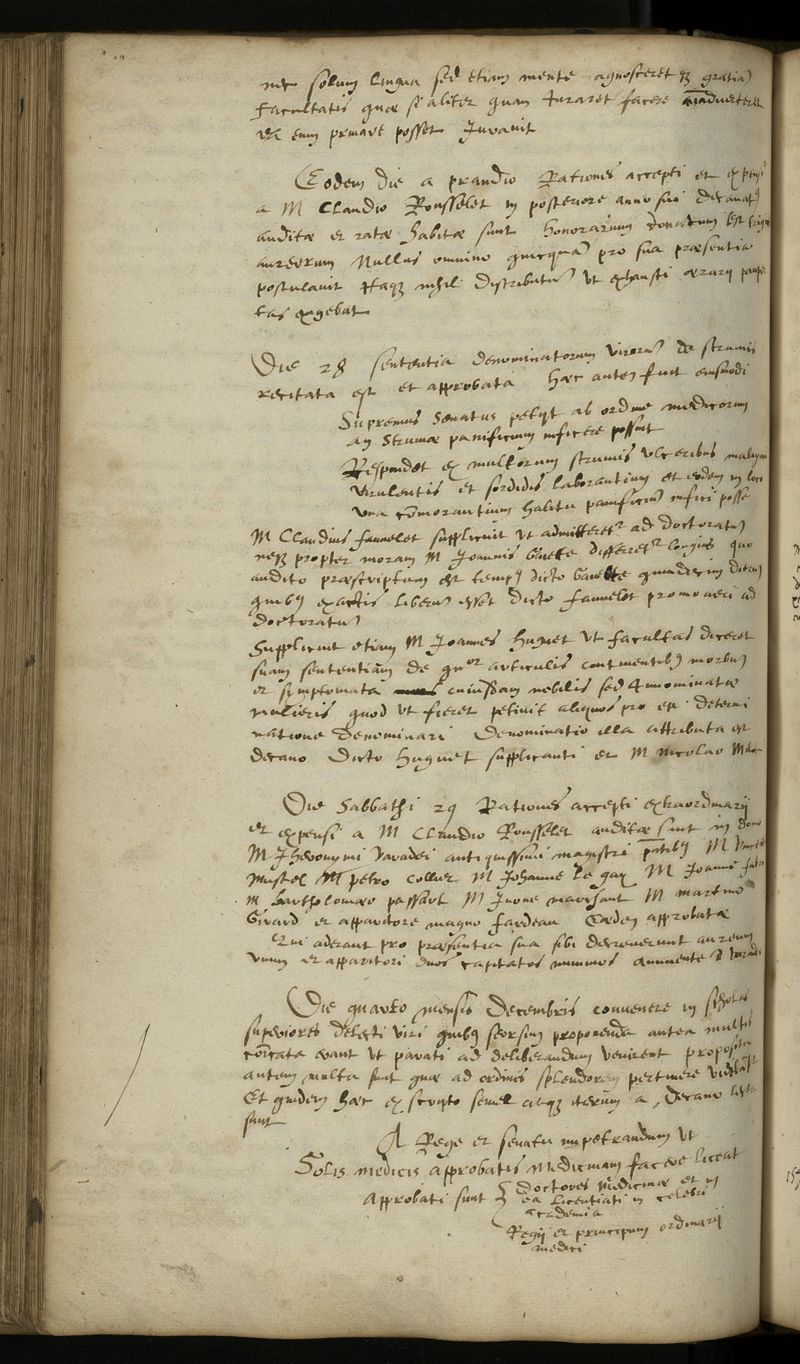 nec solum lingua sed etiam mente agnosceret q3 gratiā
facultatis quae si aliter quam iuraret facere animadverteret
eum privare posset Juravit
Eodem die a prandio Rationes accepti et expensi
a M Claudio Rousselet in posteriore anno sui decanatus
auditae et ratae habitae sunt honorarium donatum est
aureorum Nullus omnino quicquā pro sua praesentia
postulavit itaq3 nihil distributū ut exhausti aerarij pauper
tas exigebat
Die 28 sententia denominatorum virorū de strumis
recitata est et approbata haec autem fuit eiusmodi
Supremus Senatus petijt ab ordine medicorum
an Strumae panificium inficere possint
Respondet ex multorum strumis ulceribus malignis
virulentis et sordidis laborantium et eodem in loco
una cōmorantium halitu panificiū infici posse
M Claudius fauvelet supplicuit ut admitteretr ad doctoratū
neq3 propter moram M Joannis differetr longius quo
audito praescriptum est temp9 dicto quindecim dierū
quib9 exactis liberū esset dicto fauvelet promoveri ad
doctoratū
Supplicuit etiam M Joannes huguet ut facultas diceret
suam sententiam de quor articulis continentib9 morbū
et symptomata cuiusdam nobilis sed innominatae
mulieris quod ut fieret petivit aliquos pro ea determi
natione denominari Denominatio illa attributa est
decano Dicto huguet supplicanti et M Nicolao
Die Sabbathi 29 Rationes accepti extraordinarij
et expensi a M Claudio Rousselet auditae sunt in domo
M Jheronymi Varadei antiquissimi magistri M
M petro collier M Johanne Le gay M Joanne
M Bartholomaeo passart M Juone marchant M martino
Girard et apparitore magno fardeau Eaedem approbatae
Qui aderant pro praesentia sua sibi decreverunt aureum
unum et apparitori duos capitatos nummos annuente D
Die quarto mensis Decembris convenere in scholas
superiores delecti viri quibus seorsim proponenda antea multis
erant ut parati ad deliberandum venirent proposita
autem multa sunt quae ad ordinis splendorem pertinere
Et quidem haec ex scripto semel atq3 iterum a Decano lecta
sunt
A Rege et senatu impetrandum ut
Solis medicis approbatis Medicinam facere liceat
Approbati sunt doctores Medicinae et in
ea Licentiati in celebri
academia
Regij et principum ordinarij
medici